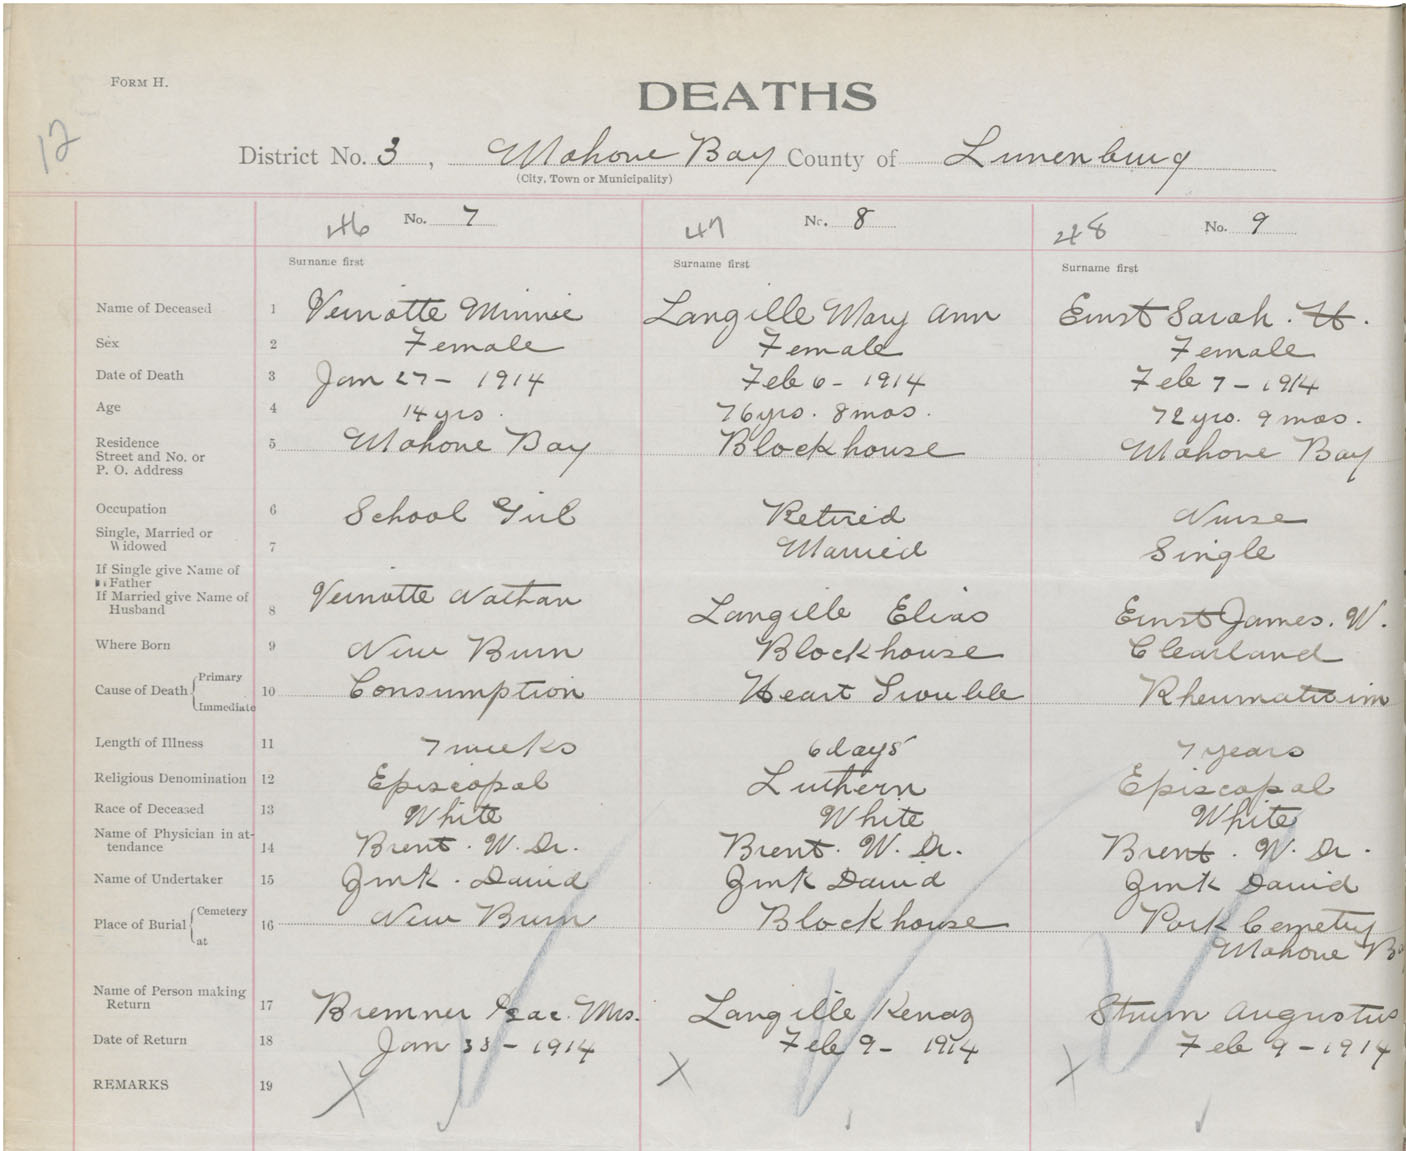 FORM H.
DEATHS
12
District No. 3, Mahone Bay County of Lunenburg
(City, Town or Municipality)
46 No. 7 47 No. 8 48 No. 9
Surname first Surname first Surname first
Name of Deceased 1 Veinotte Minnie Langille Mary Ann Ernst Sarah. H.
Sex 2 Female Female Female
Date of Death 3 Jan 27 - 1914 Feb 6 - 1914 Feb 7 - 1914
Age 4 14 yrs. 76 yrs. 8 mos. 72 yrs. 9 mos.
Residence
Street and No. or
P. O. Address 5 Mahone Bay Blockhouse Mahone Bay
Occupation 6 School Girl Retired Nurse
Single, Married or
Widowed 7 Married Single
If Single give Name of
Father
If Married give Name of
Husband 8 Veinotte Nathan Langille Elias Ernst James. W.
Where Born 9 New Burn Blockhouse Clearland
Cause of Death { Primary
Immediate 10 Consumption Heart Trouble Rheumatisim
Length of Illness 11 7 weeks 6 days 7 years
Religious Denomination 12 Episcopal Luthern Episcopal
Race of Deceased 13 White White White
Name of Physician in at-
tendance 14 Brent. W. Dr. Brent. W. Dr. Brent. W. Dr.
Name of Undertaker 15 Zink. David Zink David Zink David
Place of Burial { Cemetery
at 16 New Burn Blockhouse Park Cemetry
Mahone
Name of Person making
Return 17 Bremner Isac. Mrs. Langille Kenaz Strum Augustus
Date of Return 18 Jan - 1914 Feb 9 - 1914 Feb 9 - 1914
REMARKS 19